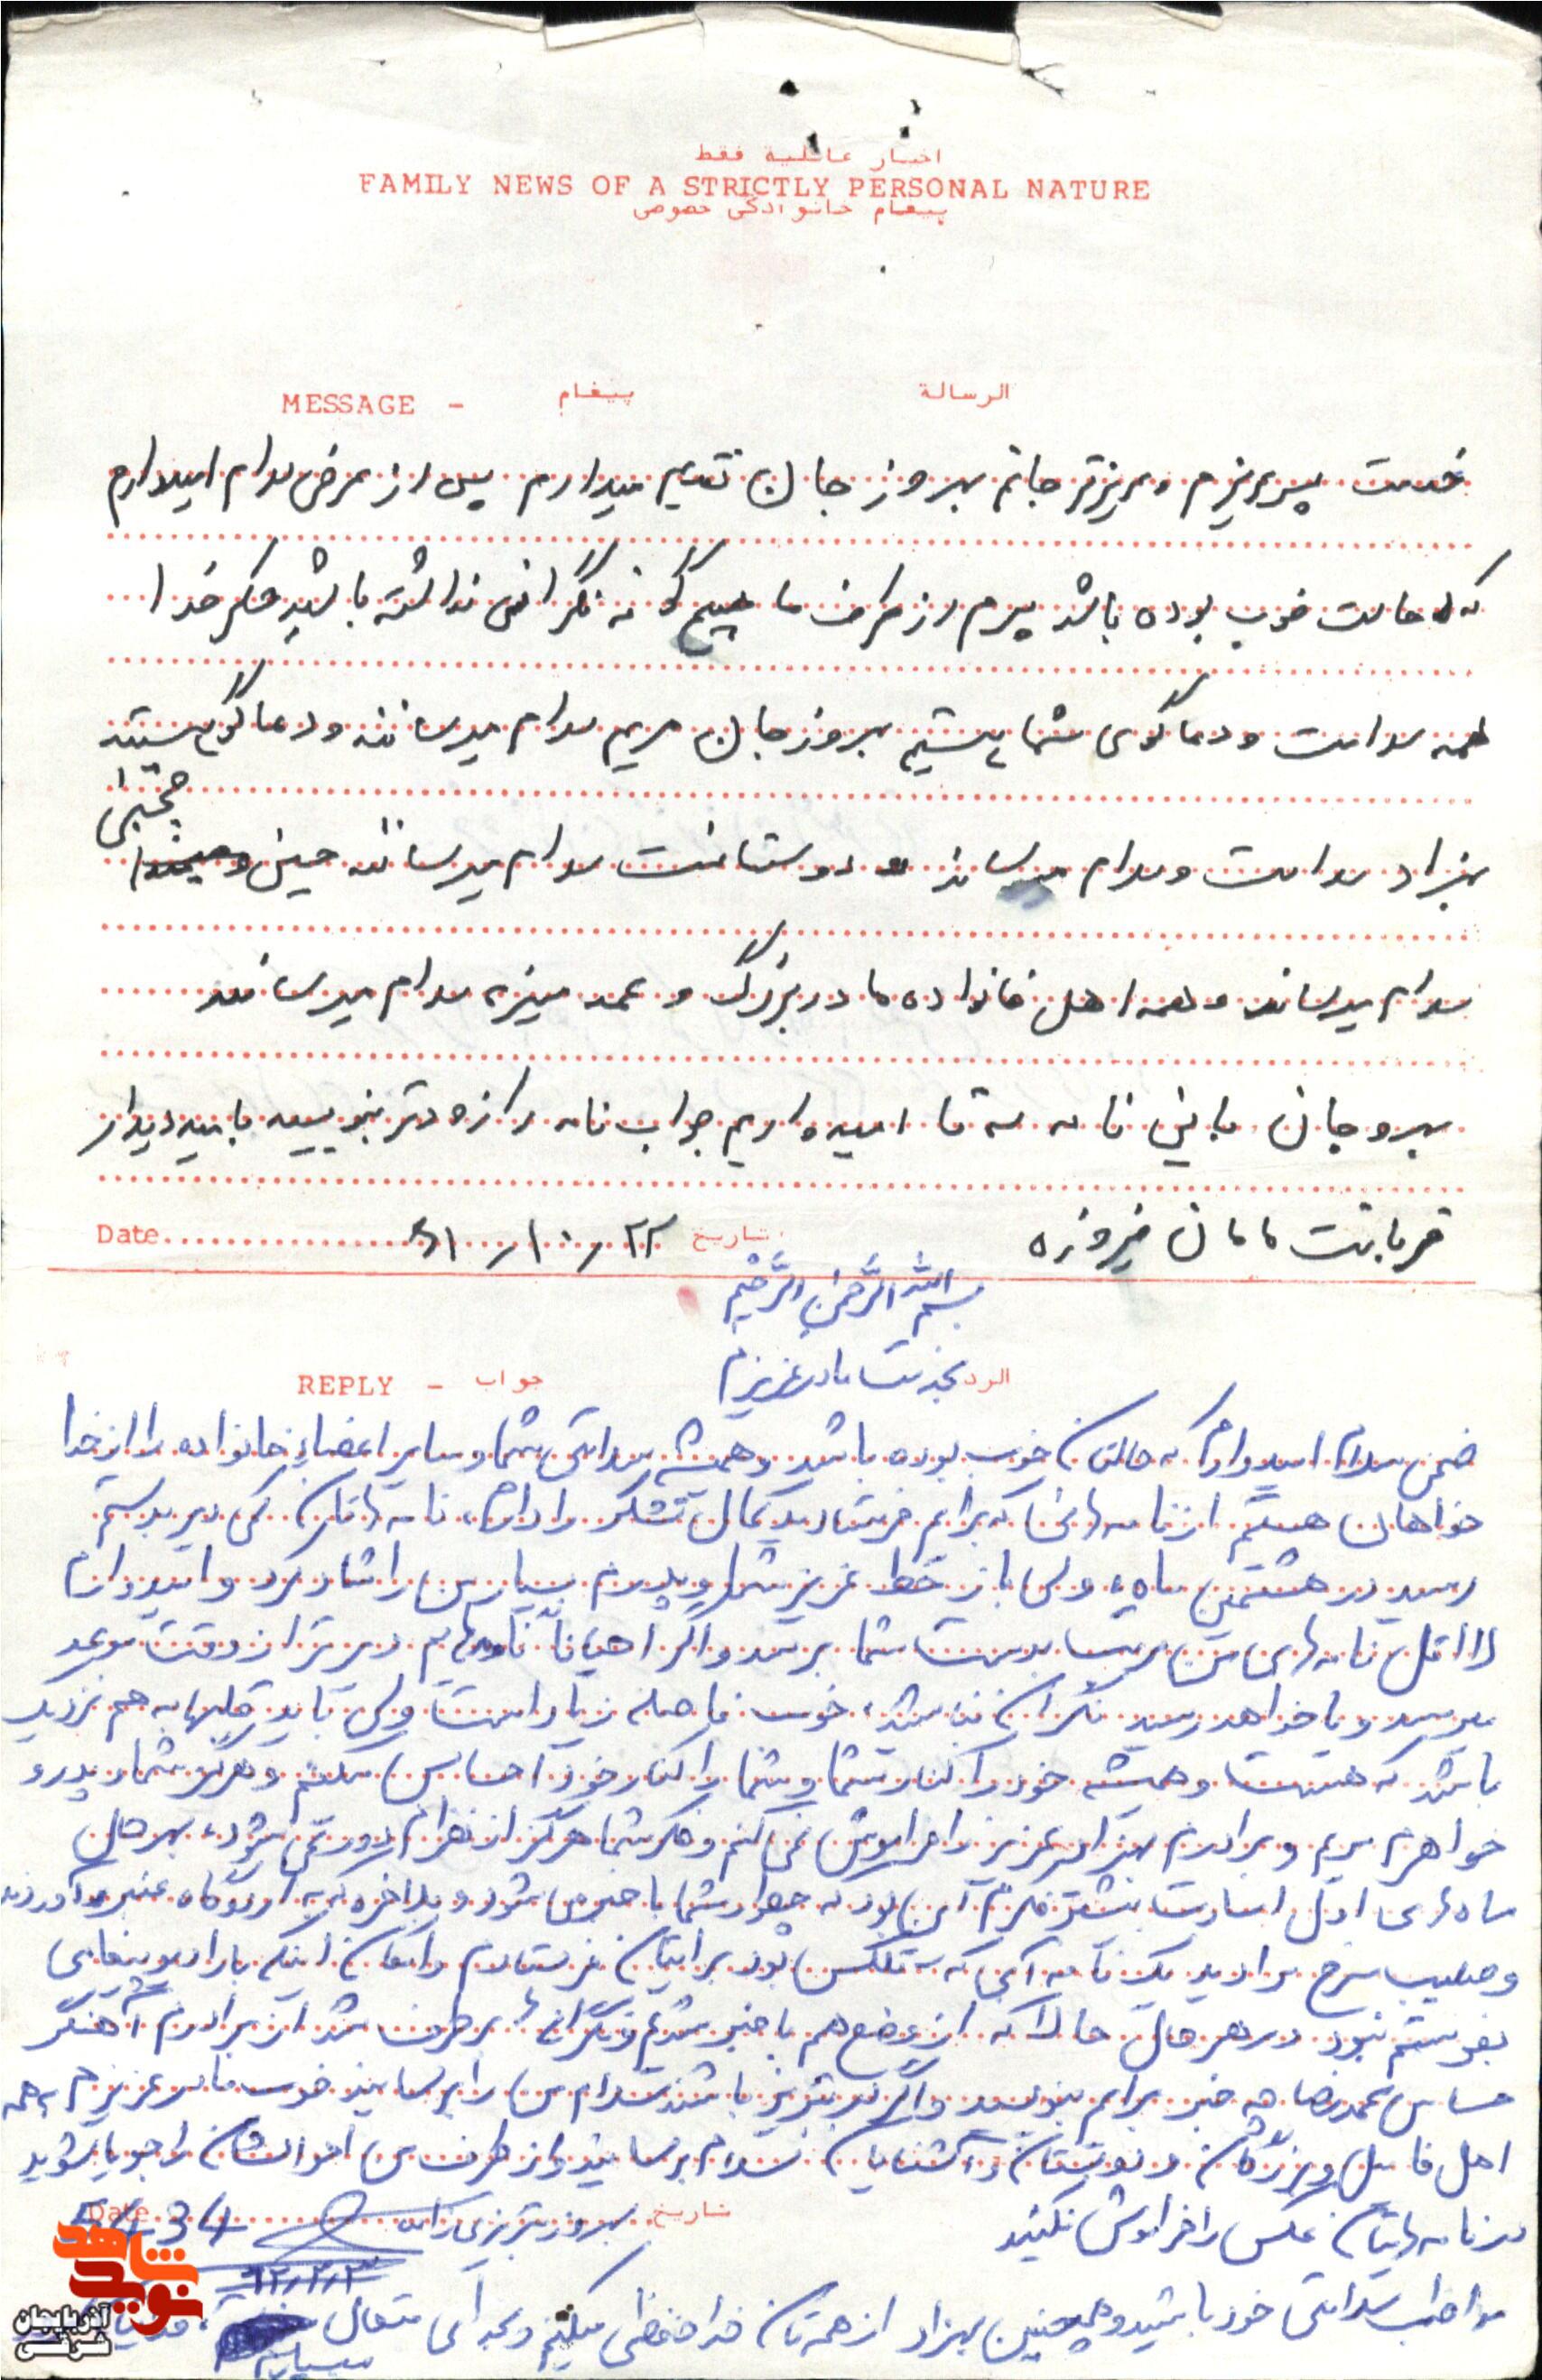 اخبار عائلية فقط
FAMILY NEWS OF A STRICTLY PERSONAL NATURE
پیغام خانوادگی خصوصی
MESSAGE - پیغام الرسالة
خدمت پسر عزیزم و عزیزتر جانم بهروز جان تقدیم میدارم پس از عرض سلام امیدوارم
که حالت خوب بوده باشد پسرم از طرف ما هیچ گونه نگرانی نداشته باشید شکر خدا
همه سلامت و دعاگوی شما هستیم بهروز جان مریم سلام میرسانند و دعاگوی هستند
بهزاد سلامت و سلام میرساند و دوستانت سلام میرسانند حسین و مجتبی
سلام میرسانند و همه اهل خانواده مادربزرگ و عمه منیژه سلام میرسانند
بهروجان با این نامه سه تا امیدواریم جواب نامه را زودتر بنویسید بامید دیدار
قربانت مامان فیروزه
تاریخ ۶۱/۱۰/۲۲ Date
بسم الله الرحمن الرحیم
REPLY - جواب الرد
بخدمت مادر عزیزم
ضمن سلام امیدوارم که حالتان خوب بوده باشد و همیشه سلامتی شما و سایر اعضاء خانواده را از خدا
خواهان هستم از نامه‌هائی که برایم فرستادید کمال تشکر را دارم، نامه‌هاتان کمی دیر بدستم
رسید در هشتمین ماه، ولی باز خط عزیز شما و پدرم بسیار من را شاد کرد و امیدوارم
لااقل نامه‌های من مرتب بدست شما برسد و اگر احیاناً نامه‌هایم دیرتر از وقت موعد
میرسد و یا خواهد رسید نگران نباشید، خوب فاصله زیاد است ولی باید قلبها به هم نزدیک
باشد که هست و همیشه خود را کنار شما و شما را کنار خود احساس میکنم و هرگز شما و پدر و
خواهرم مریم و برادرم بهزاد عزیز را فراموش نمی‌کنم و فکر شما هرگز از نظرم دور نمی‌شود، بهرحال
ماه‌های اول اسارت بیشتر فکرم این بود که چطور شما باخبر می‌شوید و بلاخره که به اردوگاه عنبر آوردند
و صلیب سرخ را دیدید یک نامه آبی که تلکس بود برایتان فرستادم و امکان اینکه با رادیو پیغامی
بفرستم نبود در هر حال حالا که از وضع هم باخبر شدیم و نگرانی‌ها برطرف شد از برادرم آهنگر
حساس محمدرضا هر خبر برایم بنویسید و اگر در تبریز باشند سلام من را برسانید خوب مادر عزیزم به همه
اهل فامیل و بزرگان و دوستان و آشنایان سلام برسانید و از طرف من احوالشان را جویا شوید
در نامه‌هایتان عکس را فراموش نکنید
تاریخ بهروز تبریزی زاده Date 5434
۶۲/۲/۳
مواظب سلامتی خود باشید و همچنین بهزاد از همه‌تان خداحافظی میکنم و بخدای متعال
میسپارم
نوید شاهد
آذربایجان
شرقی